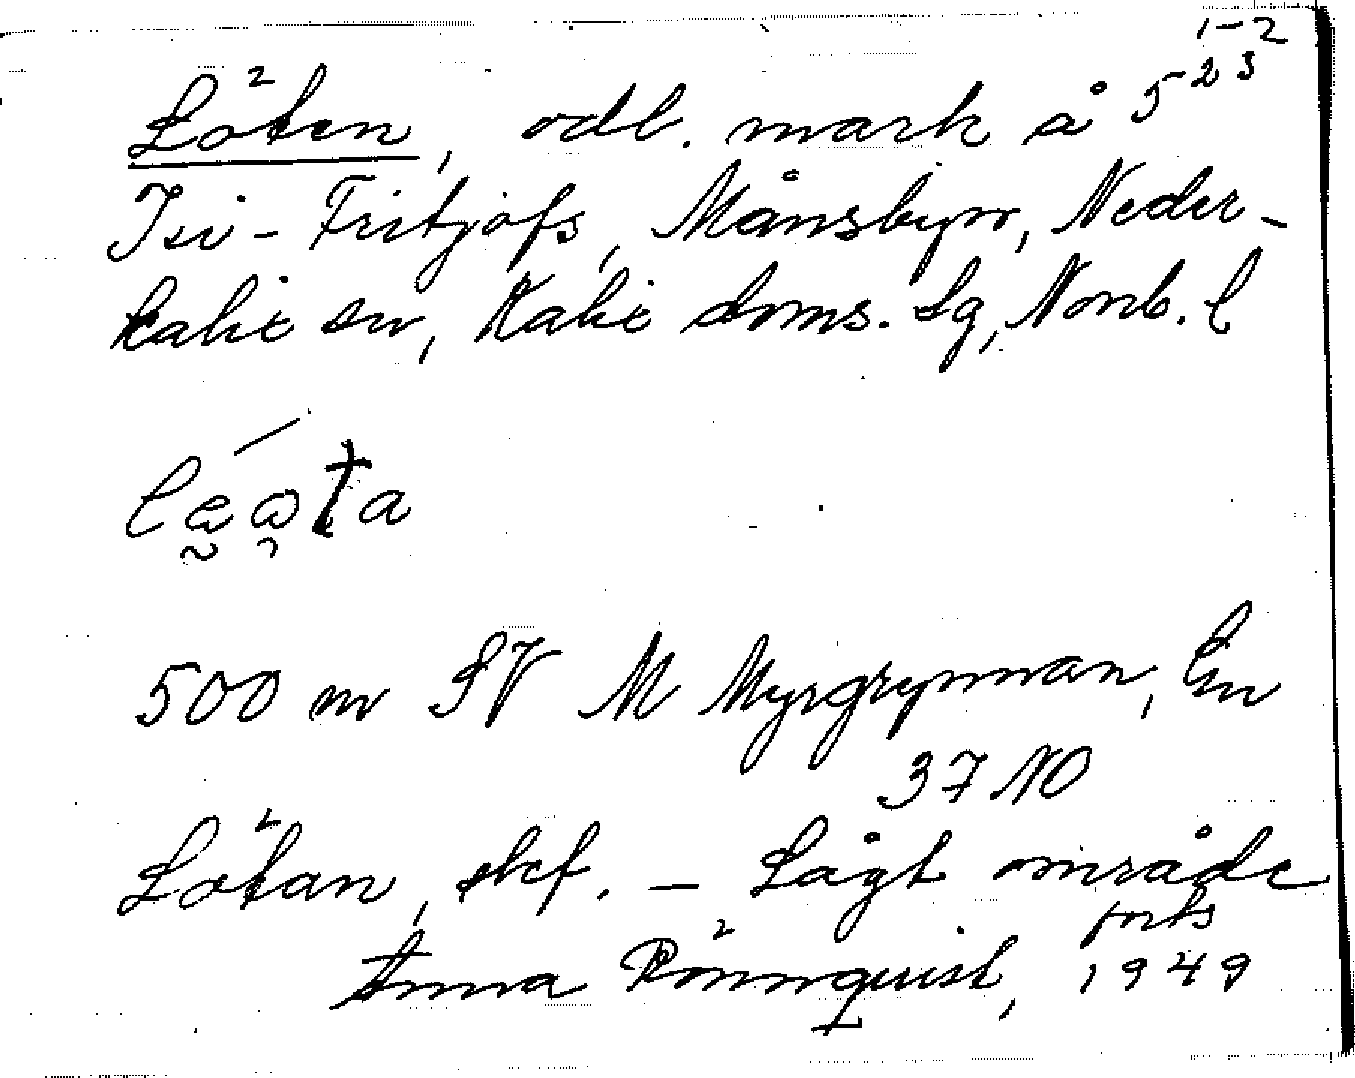 1-2
Löten, odl. mark å 5 23
Isi-Fritjofs, Månsbyn, Neder-
kalix sn, Kalix doms. lg, Norrb. l
500 m SV M Myrgrynnan, En
37 NO
Lötan, skf. — Lågt område
forts
Anna Rönnquist, 1949